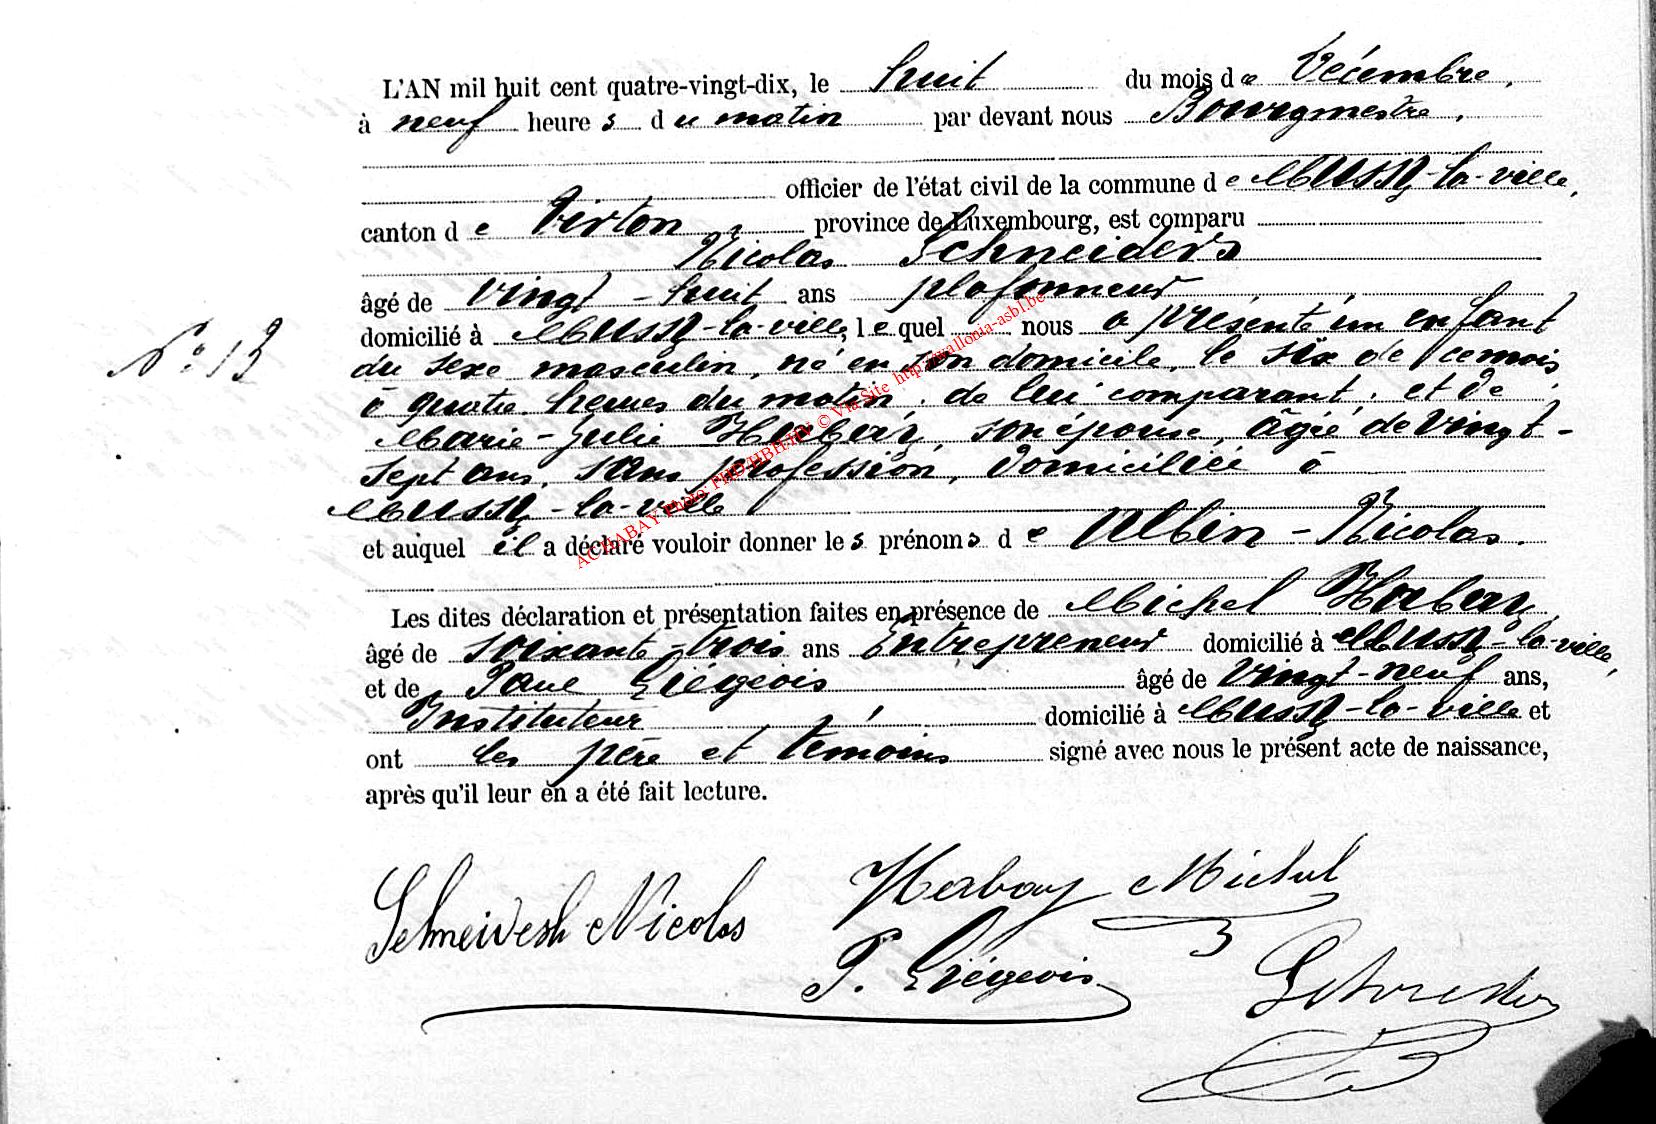 L'AN mil huit cent quatre-vingt-dix, le huit du mois de Décembre,
à neuf heures du matin par devant nous Bourgmestre,
officier de l'état civil de la commune de Mussy-la-ville,
canton de Virton, province de Luxembourg, est comparu
Nicolas Schneiders
âgé de vingt-huit ans plafonneur
N° 13
domicilié à Mussy-la-ville, lequel nous a présenté un enfant
du sexe masculin, né en son domicile, le six de ce mois
à quatre heures du matin, de lui comparant, et de
Marie-Julie Habay, son épouse, âgée de vingt-
sept ans, sans profession, domiciliée à
Mussy-la-ville
et auquel il a déclaré vouloir donner les prénoms de Albin-Nicolas.
Les dites déclaration et présentation faites en présence de Michel Habay,
âgé de soixante-trois ans Entrepreneur domicilié à Mussy-la-ville,
et de Paul Liégeois âgé de vingt-neuf ans,
Instituteur domicilié à Mussy-la-ville et
ont les père et témoins signé avec nous le présent acte de naissance,
après qu'il leur en a été fait lecture.
Nicolas Habay Michel
P. Liégeois
ACHABAY Photo: PHD-HBH-HV © Via Site http://wallonia-asbl.be